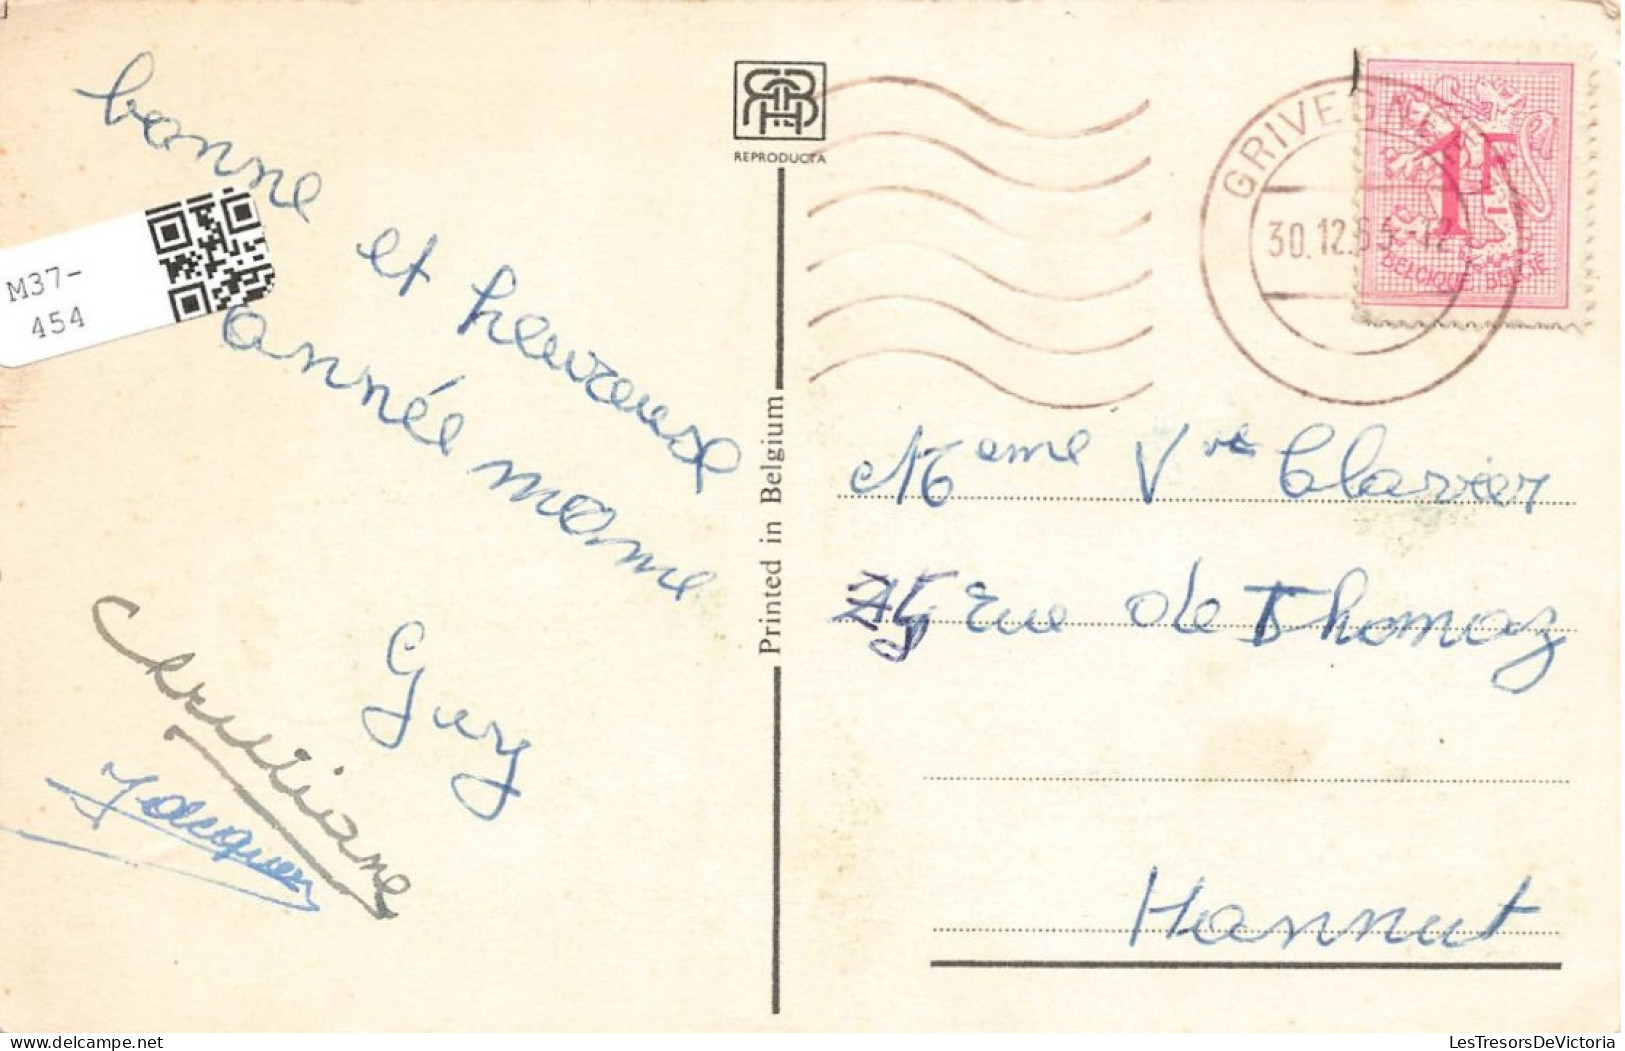 bonne et heureuse
année mame
Guy
Christiane
Jacques
M37-
454
REPRODUCTA
Printed in Belgium
GRIVEGNEE
30.12.65-12
1F
BELGIQUE-BELGIË
Meme Vve Clavier
rue de Thomaz
Hannut
LesTresorsDeVictoria